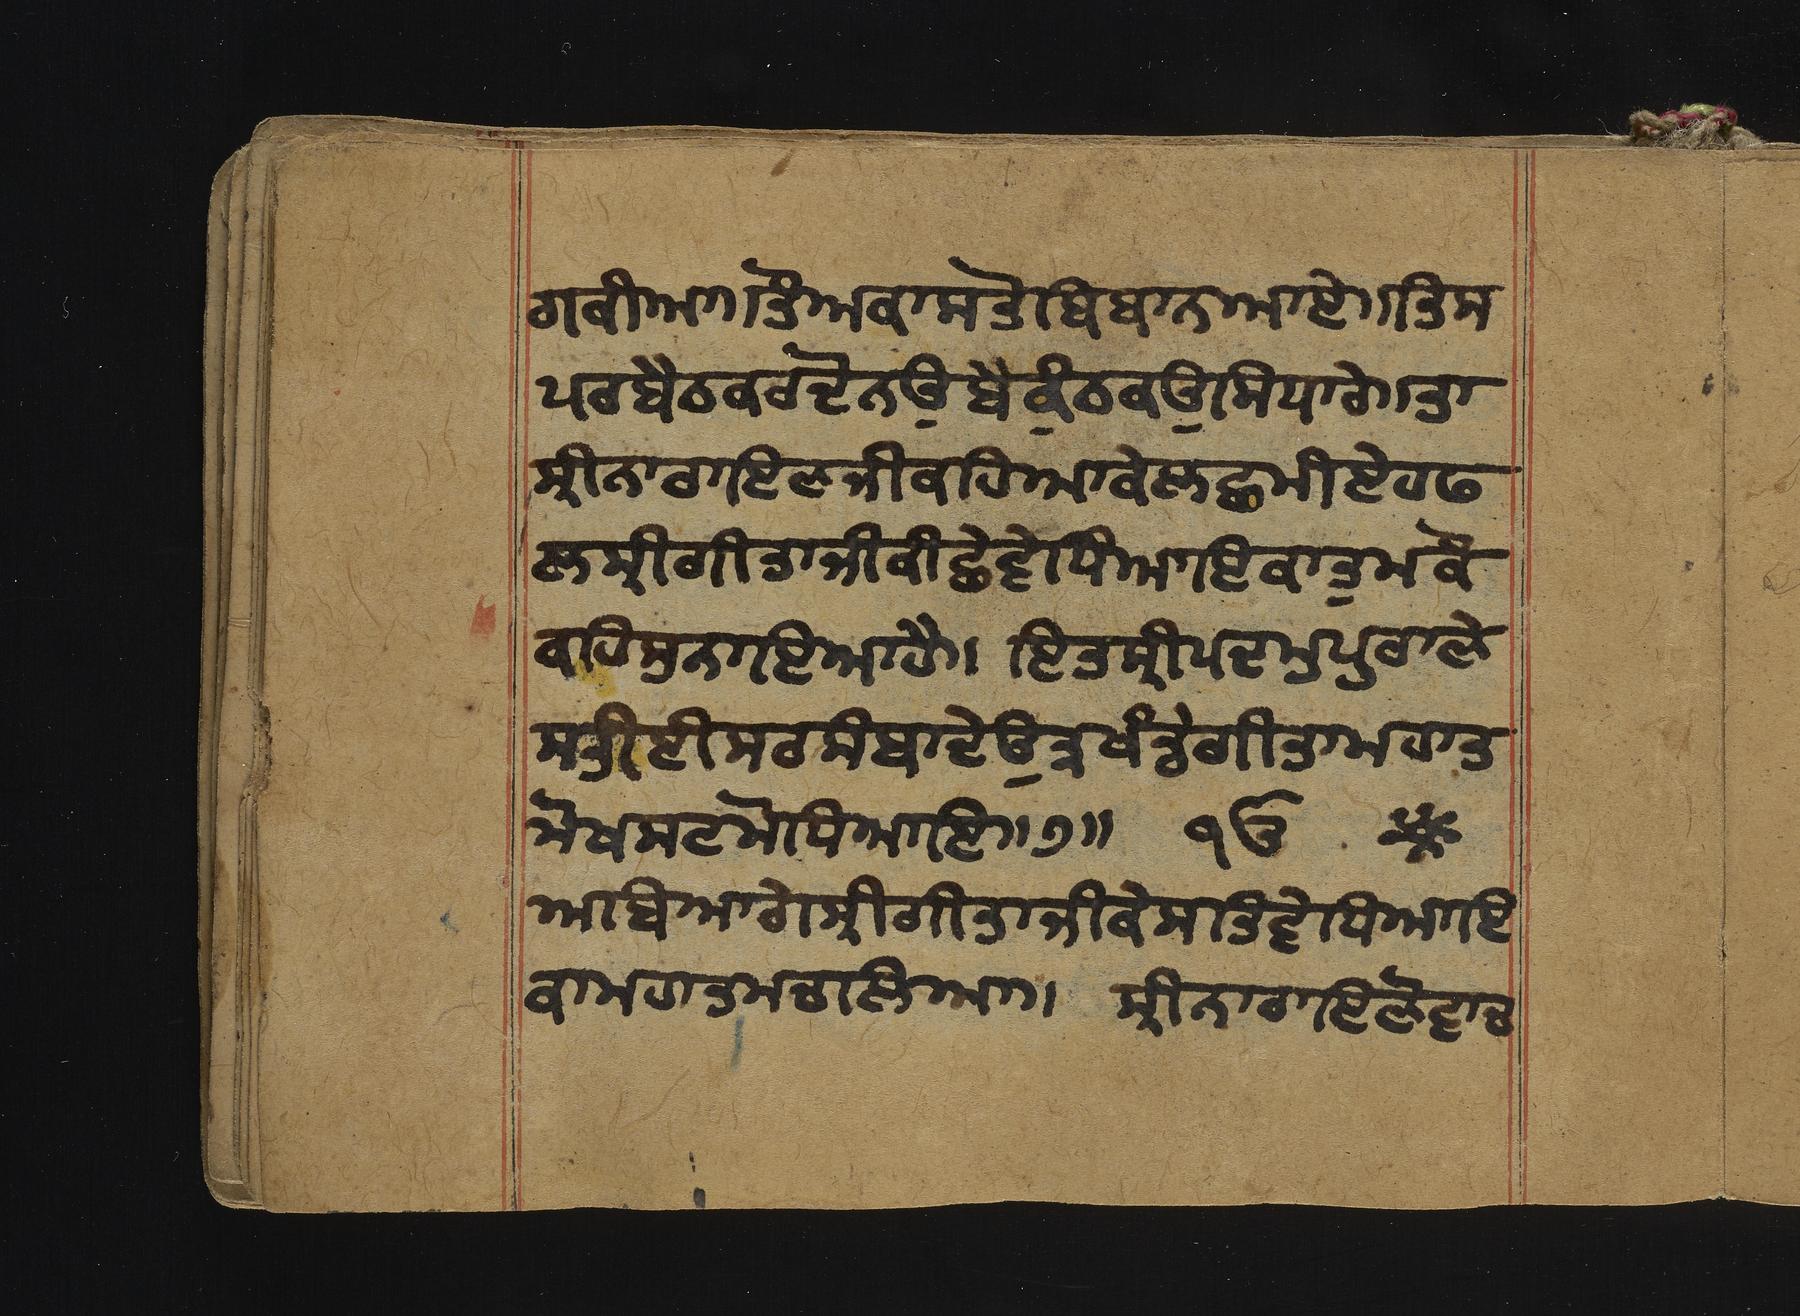 ਗਕੀਆ॥ਤੌਅਕਾਸਤੋਬਿਬਾਨਆਏ॥ਤਿਸ
ਪਰਬੈਠਕਰਦੋਨਉਬੈਕੁੰਠਕਉਸਿਧਾਰੇ॥ਤਾ
ਸ੍ਰੀਨਾਰਾਇਣਜੀਕਹਿਆਕੇਲਛਮੀਏਹਫ
ਲਸ੍ਰੀਗੀਤਾਜੀਕੀਛੇਵੇਧਿਆਇਕਾਤੁਮਕੌ
ਕਹਿਸੁਨਾਇਆਹੈ॥ ਇਤਸ੍ਰੀਪਦਮੁਪੁਰਾਣੇ
ਸਤੀਈਸਰਸੰਬਾਦੇਉਤ੍ਰਖੰਡੇਗੀਤਾਮਹਾਤ
ਮੋਖਸਟਮੋਧਿਆਇ॥੭॥ ੴ
ਆਬਿਆਗੇਸ੍ਰੀਗੀਤਾਜੀਕੇਸਾਤਿਵੇਧਿਆਇ
ਕਾਮਹਾਤਮਚਾਲਿਆ॥ ਸ੍ਰੀਨਾਰਾਇਣੋਵਾਚ